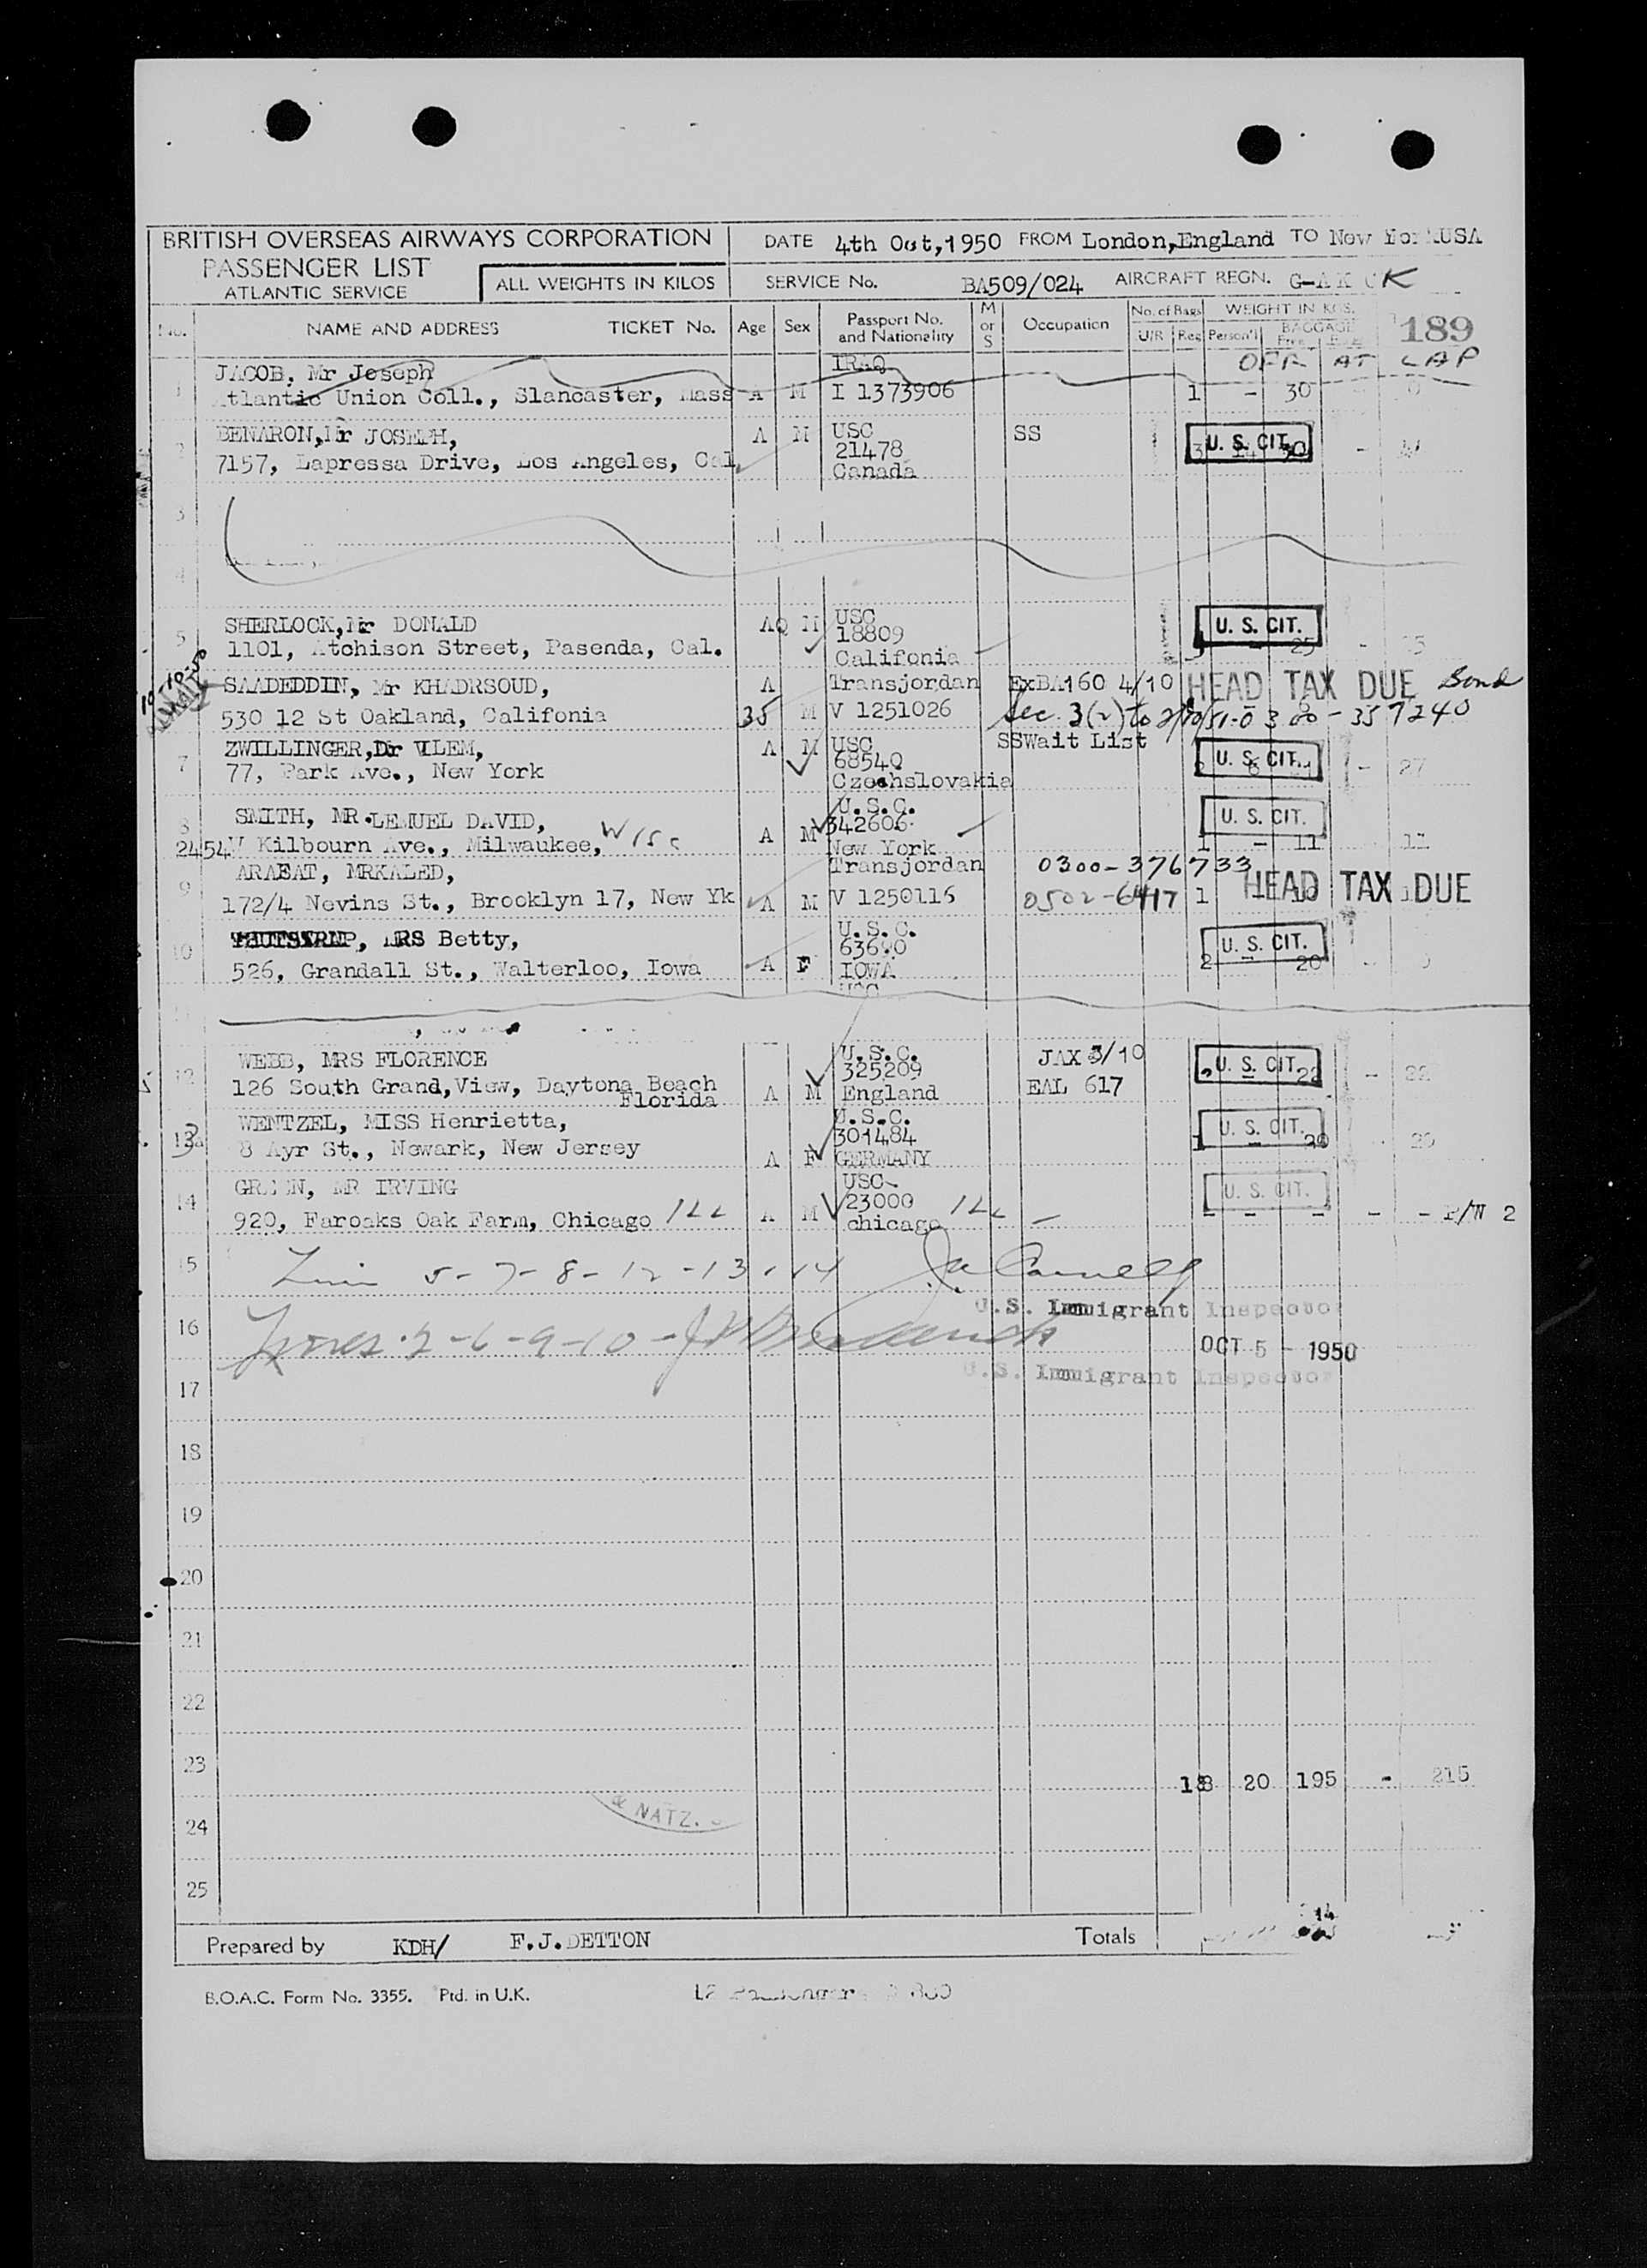 BRITISH OVERSEAS AIRWAYS CORPORATION
PASSENGER LIST
ATLANTIC SERVICE
ALL WEIGHTS IN KILOS
DATE 4th Oct,1950 FROM London,England TO New York USA
SERVICE No. BA509/024 AIRCRAFT REGN. G-AK K
No. NAME AND ADDRESS TICKET No. Age Sex Passport No. and Nationality M or S Occupation No. of Bags U/R Reg WEIGHT IN KGS. Person'l BAGGAGE Free 189
JACOB, Mr Joseph IRAQ OFF AT LAP
1 Atlantic Union Coll., Slancaster, Mass A M I 1373906 1 - 30
BENARON,Mr JOSEPH, A M USC SS U. S. CIT.
2 7157, Lapressa Drive, Los Angeles, Cal, 21478 3 30 -
Canada
3
4
SHERLOCK,Mr DONALD A M USC U. S. CIT.
5 1101, Atchison Street, Pasenda, Cal. 18809 - 25 -
Califonia
SAADEDDIN, Mr KHADRSOUD, A Transjordan ExBA160 4/10 HEAD TAX DUE Bond
530 12 St Oakland, Califonia 35 M V 1251026 Sec. 3(2) to
ZWILLINGER,Dr VILEM, A M USC SSWait List U. S. CIT.
7 77, Park Ave., New York 68540 - 27
Czechslovakia
SMITH, MR.LEMUEL DAVID, U.S.C. U. S. CIT.
8 2454W Kilbourn Ave., Milwaukee, Wisc A M 342606 1 - 11 11
New York
ARABAT, MRKALED, Transjordan 0300-376733
9 172/4 Nevins St., Brooklyn 17, New Yk A M V 1250116 0502-6417 1 HEAD TAX DUE
MRS Betty, U.S.C. U. S. CIT.
10 526, Grandall St., Walterloo, Iowa A F IOWA 2 - 20 -
USC
WEBB, MRS FLORENCE U.S.C. JAX 3/10 U. S. CIT.
12 126 South Grand,View, Daytona Beach 325209 2 - 22 - 22
Florida A M England EAL 617
WENTZEL, MISS Henrietta, U.S.C. U. S. CIT.
13 8 Ayr St., Newark, New Jersey 301484 1 - 20 - 20
A F GERMANY
GREEN, MR IRVING USC U. S. CIT.
14 920, Faroaks Oak Farm, Chicago ILL A M 23000 - - - - - P/W 2
chicago ILL
15 5-7-8-12-13-14
U.S. Immigrant Inspector
16 2-6-9-10
OCT 5 - 1950
U.S. Immigrant Inspector
17
18
19
20
21
22
23 18 20 195 - 215
& NATZ.
24
25
Prepared by KDH/ F.J.DETTON Totals
B.O.A.C. Form No. 3355. Ptd. in U.K.